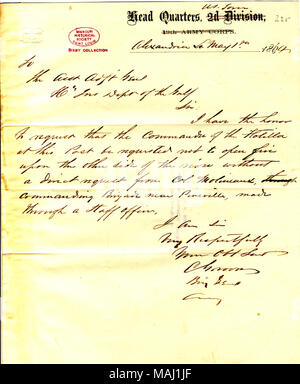 Head Quarters, 2d Division,
19TH ARMY CORPS.
MISSOURI
HISTORICAL
SOCIETY
BIXBY COLLECTION
Alexandria La May 1st 1864
To
the Asst Adjt Genl
Hd Qrs Dept of the Gulf
Sir
I have the honor
to request that the Commander of the Flotilla
at this Post be requested not to open fire
upon the other side of the river without
a direct request from Col Molineux,
commanding Brigade near Pineville, made
through a Staff officer,
I am Sir
Very Respectfully
Your Obt Servt
C Grover
Brig Genl
alamy
MAJ1JF